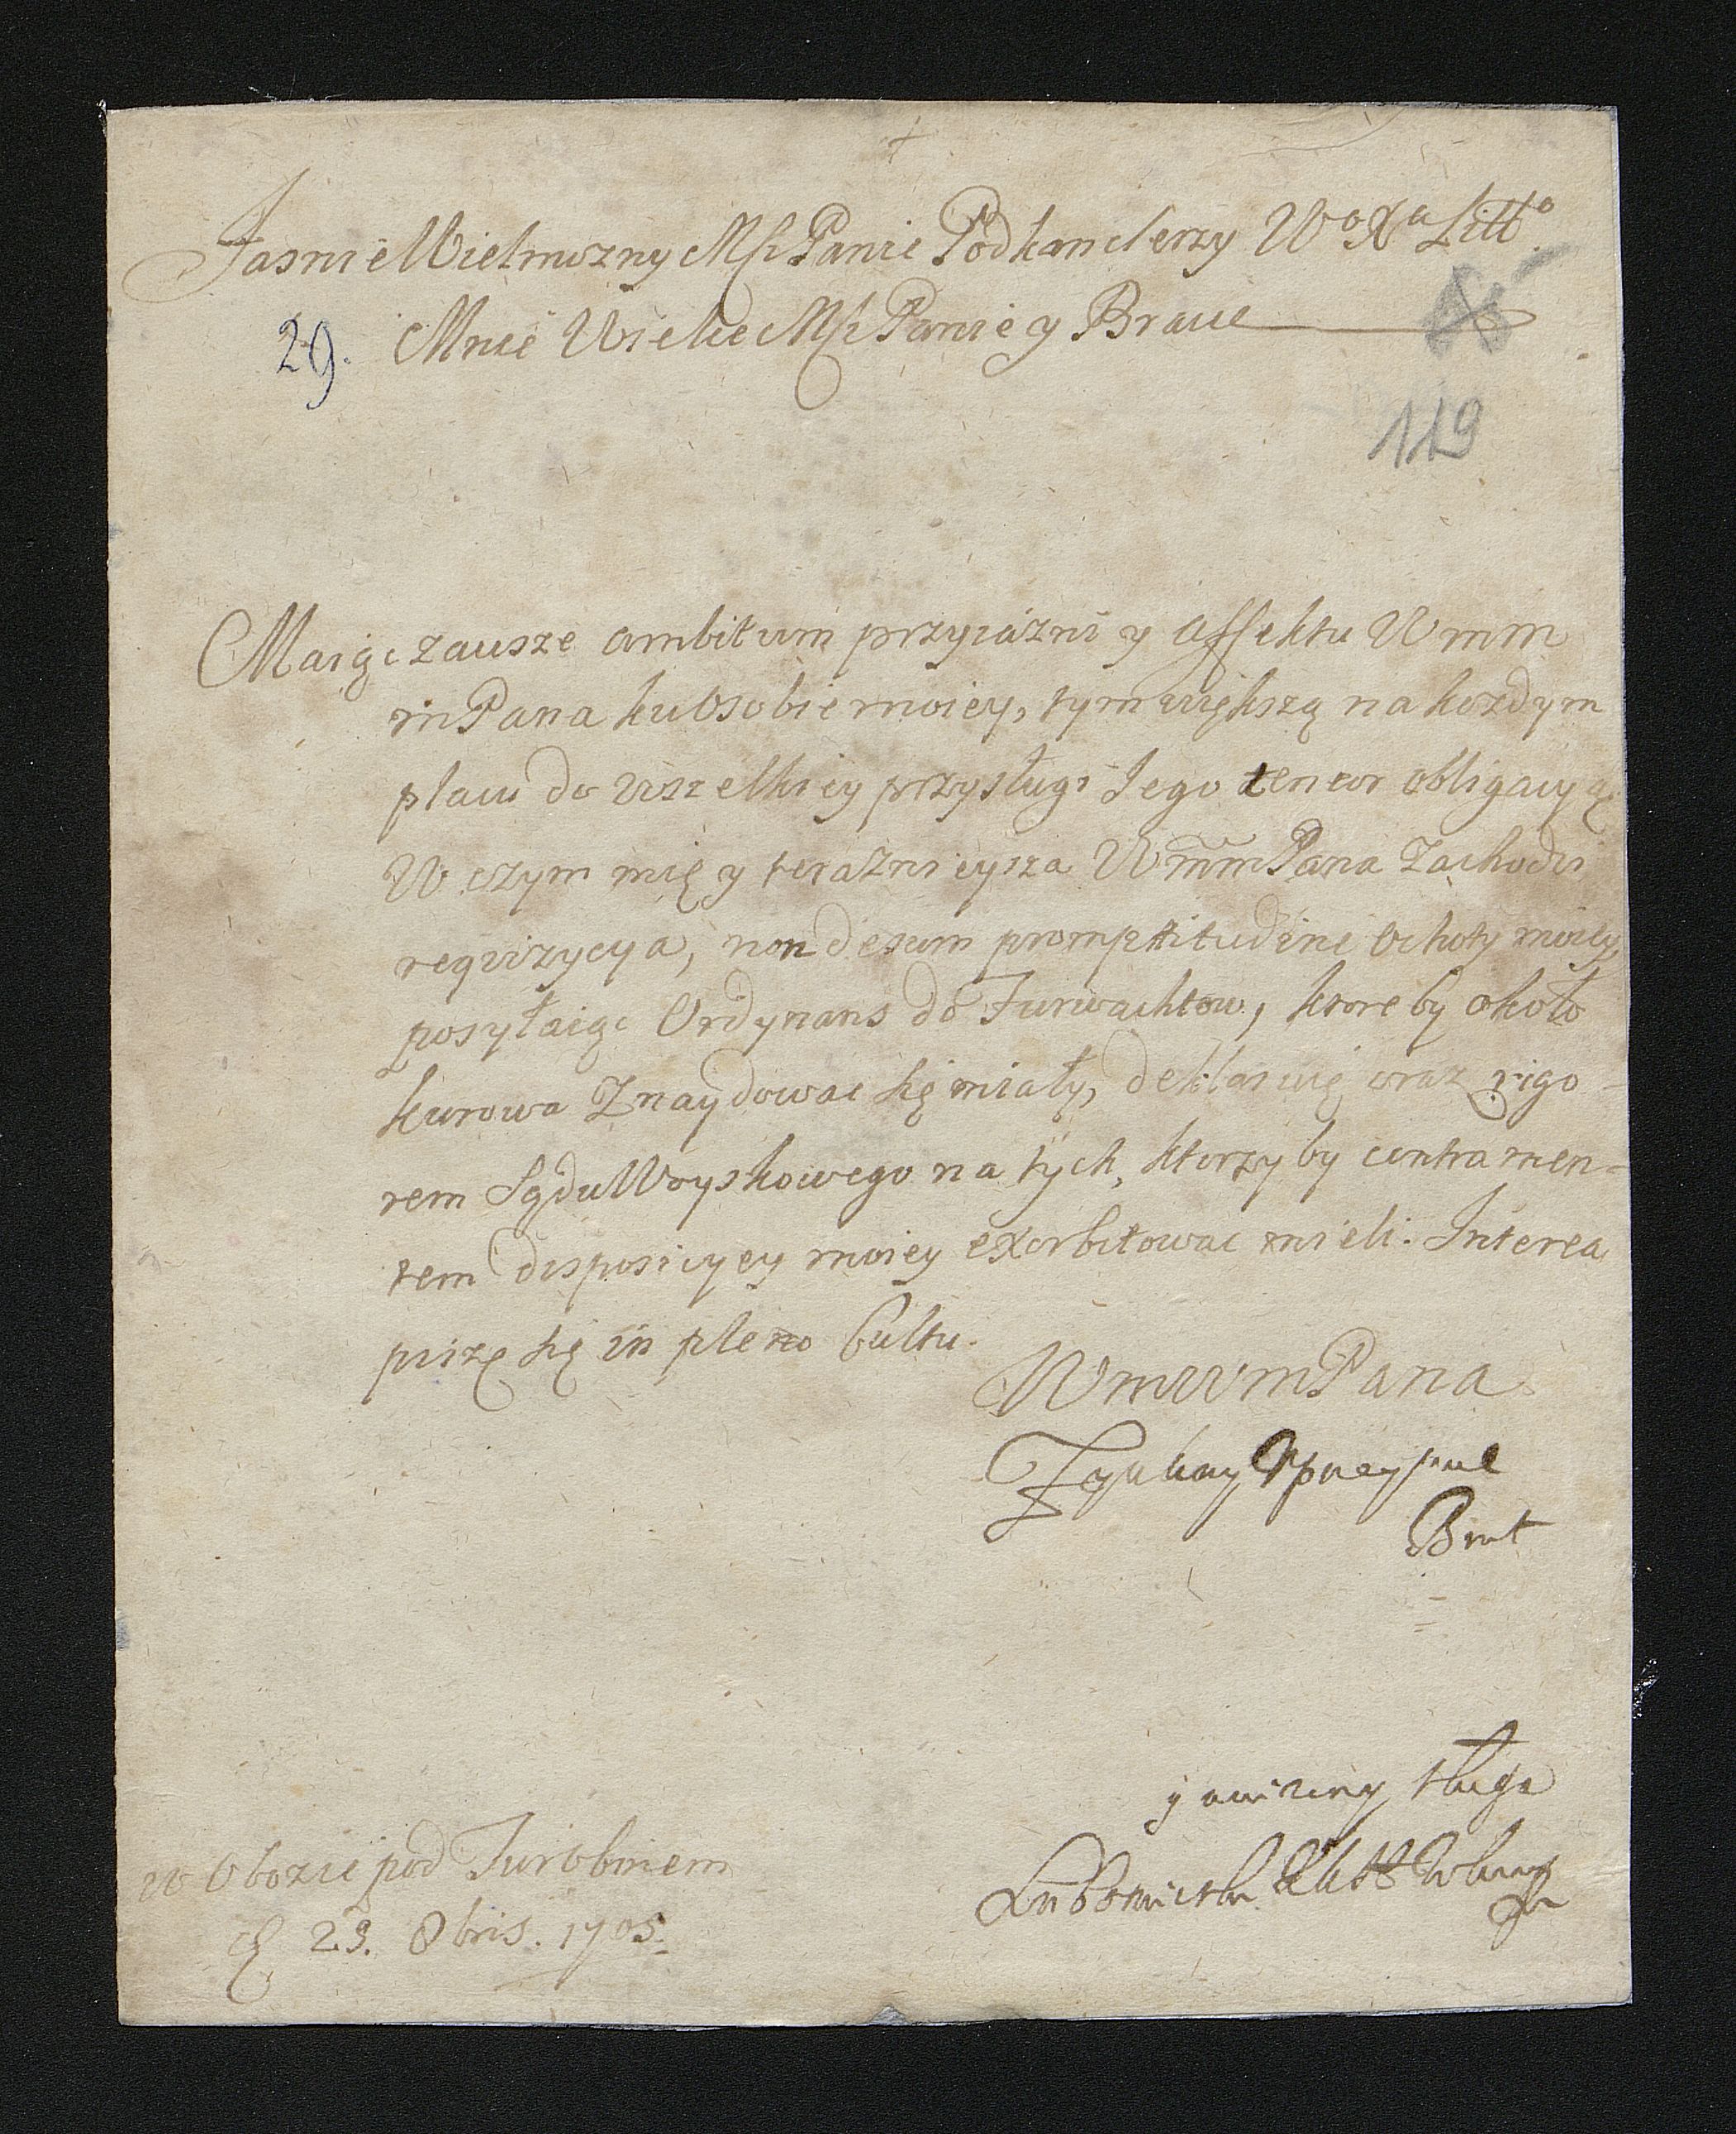 Jasnie Wielmozny Mśći Panie Podkanclerzy Wo Xa Litto
29. Mnie Wielce Mśći Panie y Bracie
119
Maiąc zausze ambitum przyiazni y affektu Wmm
mPana ku Osobie moiey, tym większą na kozdym
placu do wszelkiey przysługi Jego teneor obligacyą
W czym mię y teraznieysza WmmPana Zachodzi
reqvizycya, non desum promptitudine Ochoty moiey,
posyłaiąc Ordynans do Furwachtow, ktore by około
kurowa Znaydowac się miały, deklaruię oraz rigo-
rem Sądu Woyskowego na tych, ktorzy by contra men-
tem disposicyey moiey exorbitowac mieli. Interea
piszę się in pleno Cultu.
WmWmPana
Zyczliwy
Brat
y unizony sługa
w Obozie pod Turobinem
d 23. 8bris. 1705.